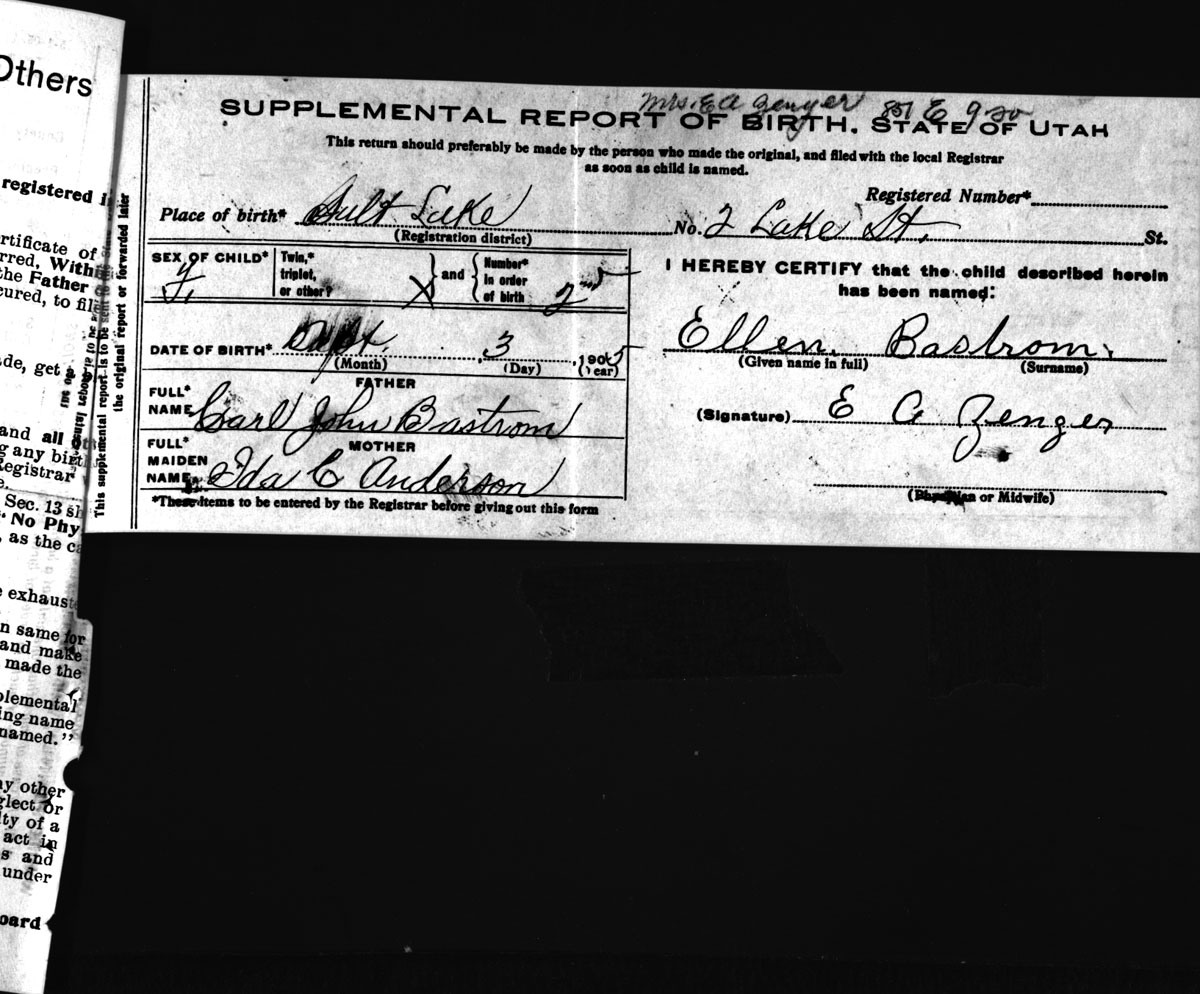 Others
registered
rtificate of
rred,
the Father
cured, to
de, get
and all
g any
Registrar
e.
Sec. 13
No Phy
, as the
e
n same for
and make
made the
plemental
ing name
named."
y other
glect or
lty of a
act in
s and
under
oard
This supplemental report is to be sent to
the original report or forwarded later
Mrs. E A Zenger 851 E 9 So
SUPPLEMENTAL REPORT OF BIRTH. STATE OF UTAH
This return should preferably be made by the person who made the original, and filed with the local Registrar
as soon as child is named.
Registered Number*
Place of birth* Salt Lake No. 2 Lake St. St.
(Registration district)
SEX OF CHILD* F.
Twin,* triplet, or other? X and Number* in order of birth 2nd
DATE OF BIRTH* Sept 3, 1905
(Month) (Day) (Year)
FATHER
FULL* NAME Carl John Bastrom
MOTHER
FULL* MAIDEN NAME Ida C Anderson
*These items to be entered by the Registrar before giving out this form
I HEREBY CERTIFY that the child described herein
has been named:
Ellen Bastrom.
(Given name in full) (Surname)
(Signature) E A Zenger
(Physician or Midwife)